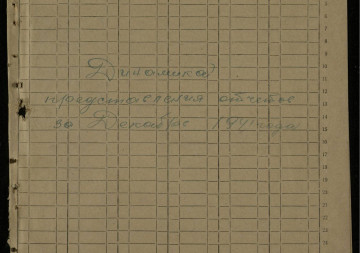 Динамика
представления отчетов
за Декабрь 1941 года